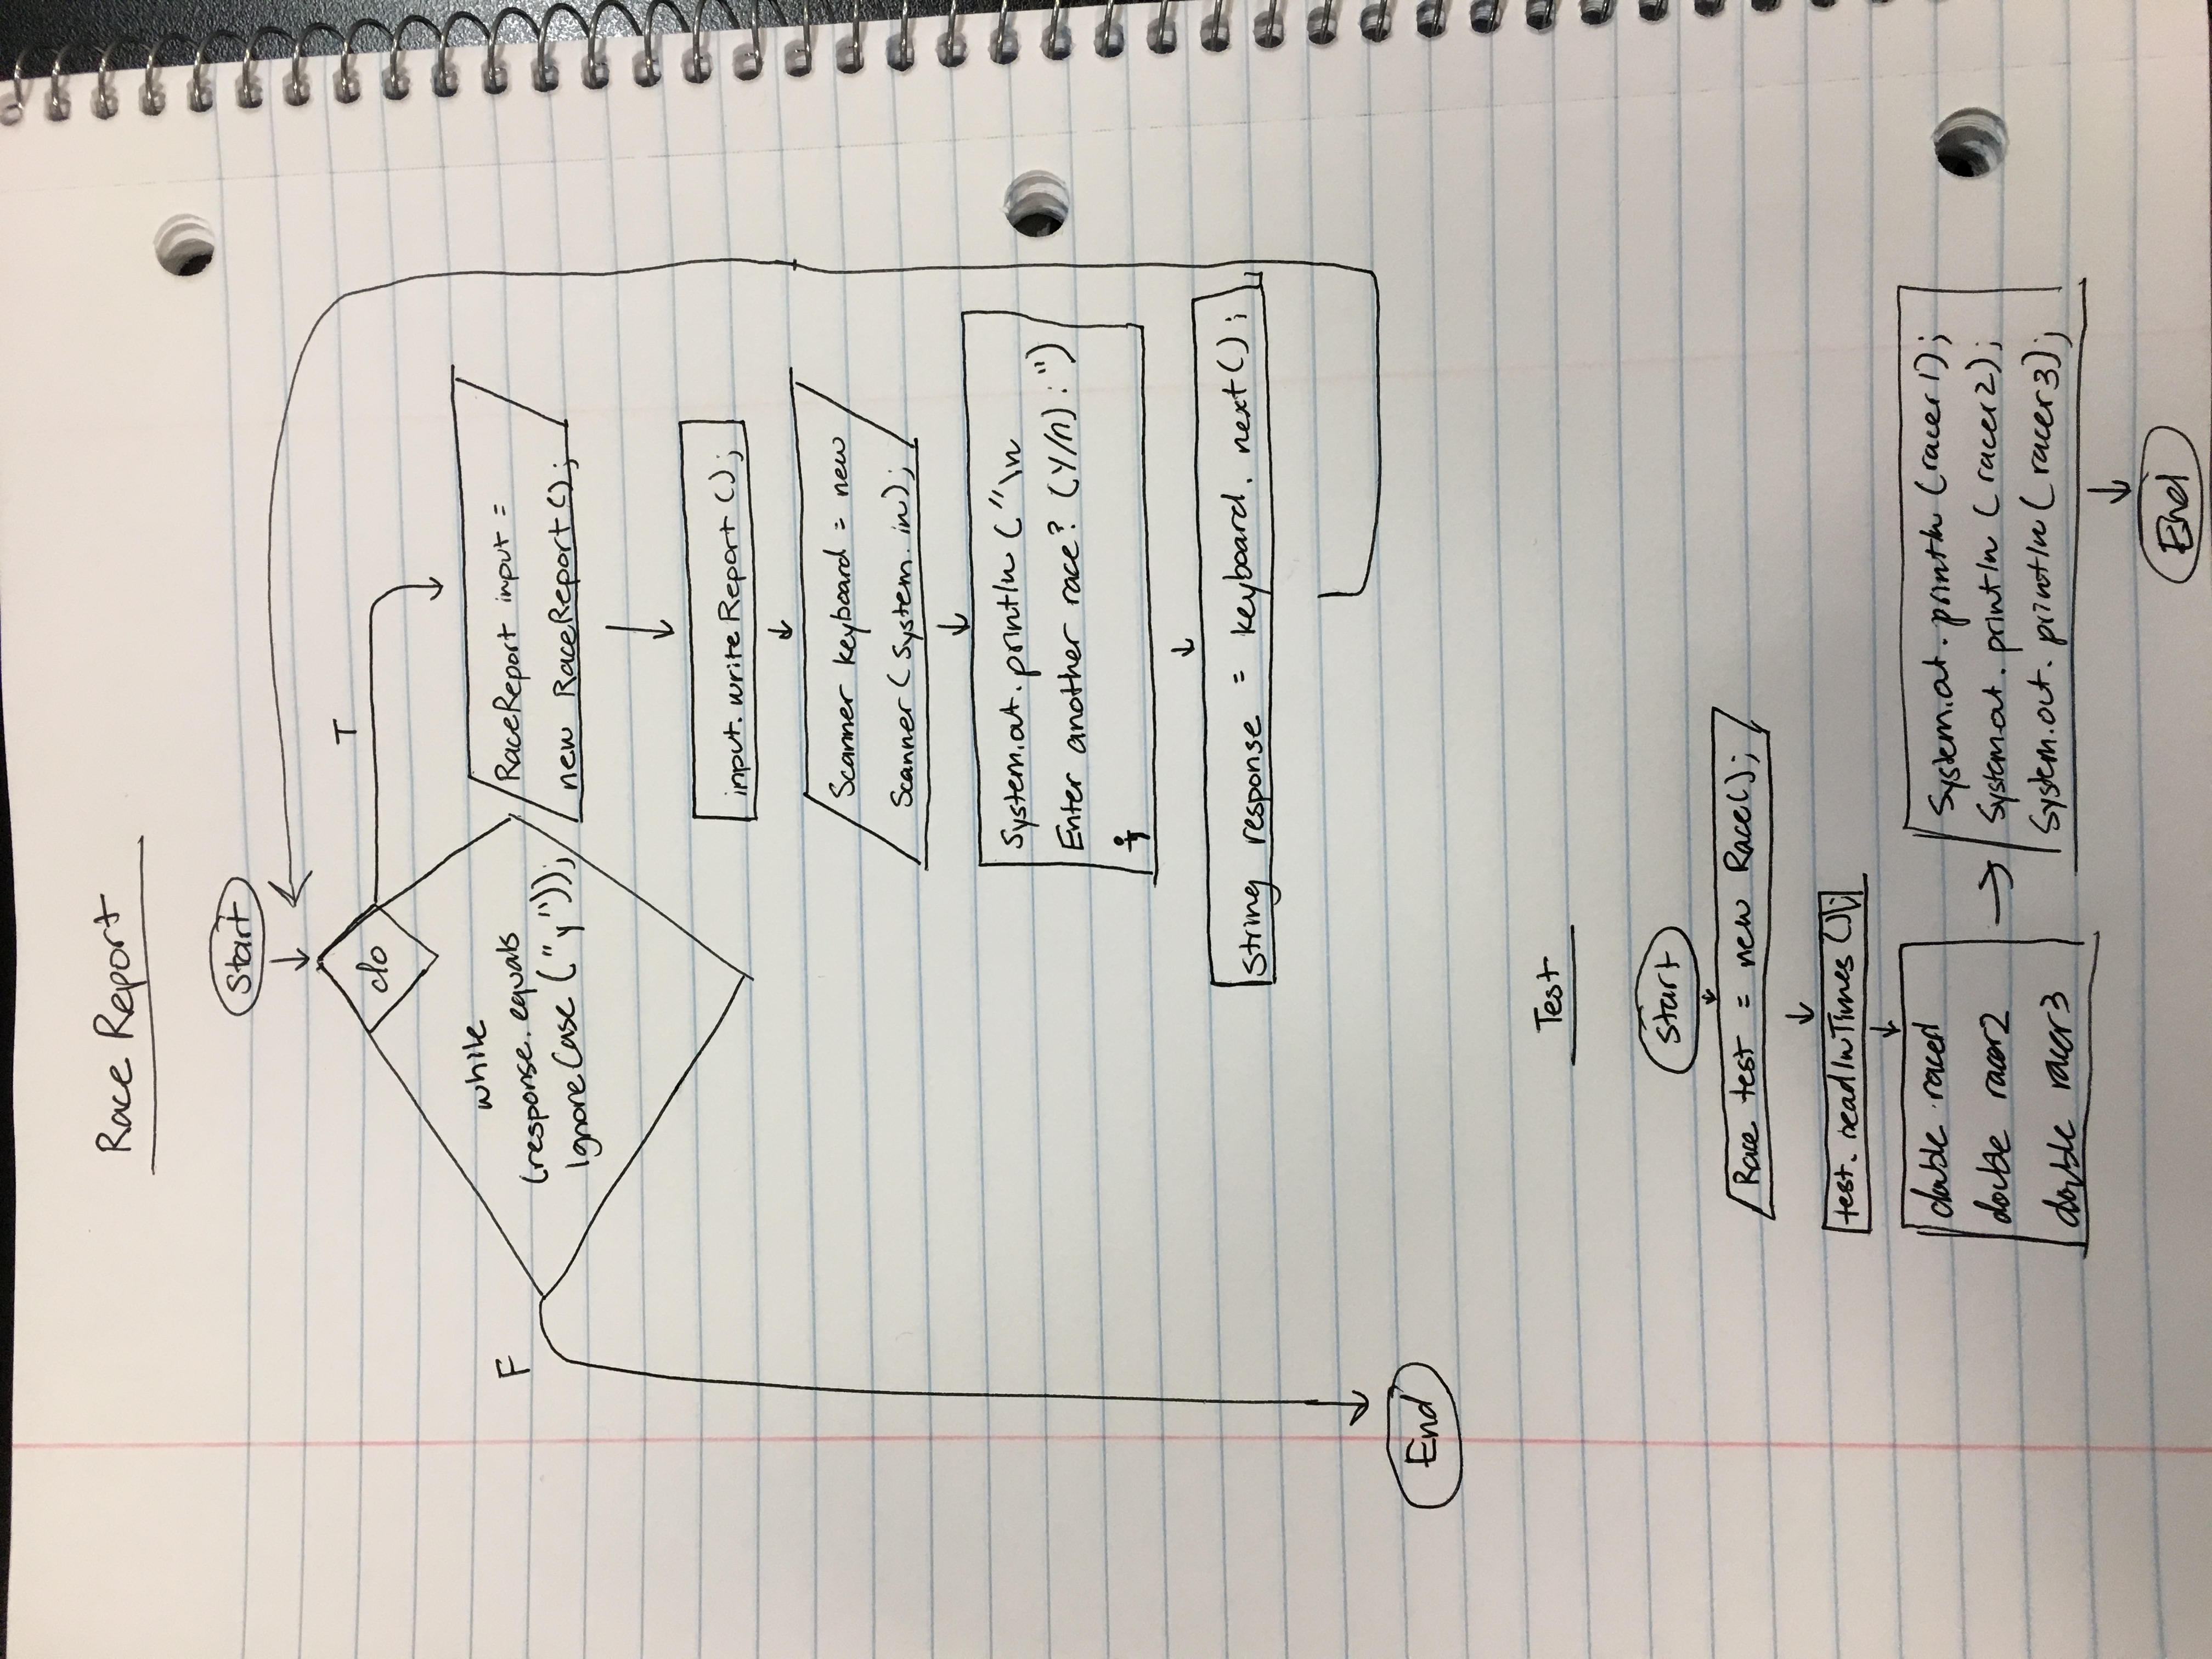 Race Report
Start
do
T
while
(response.equals
IgnoreCase ("y"));
F
RaceReport input =
new RaceReport();
input.writeReport();
Scanner keyboard = new
Scanner(System.in);
System.out.println("\n
Enter another race? (Y/n):")
;
String response = keyboard.next();
End
Test
Start
Race test = new Race();
test.readInTimes();
double racer1
double racer2
double racer3
System.out.println(racer1);
System.out.println(racer2);
System.out.println(racer3);
End